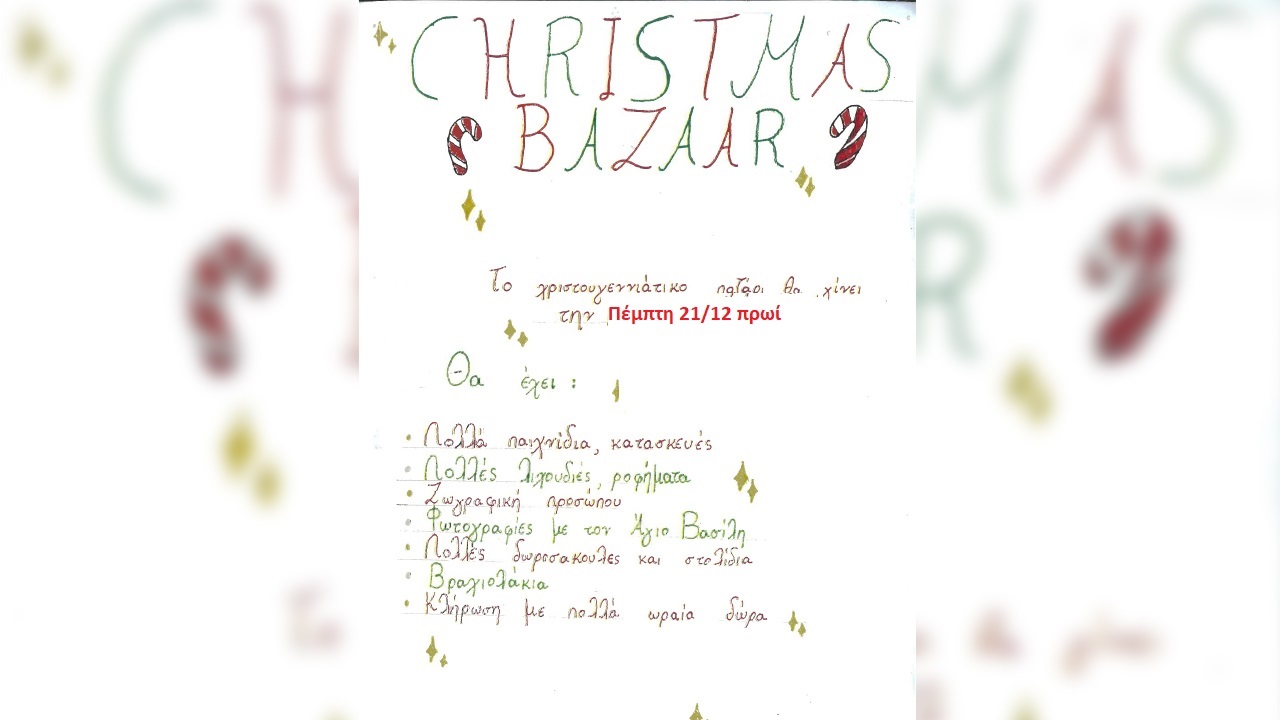 CHRISTMAS
BAZAAR
Το χριστουγεννιάτικο παζάρι θα γίνει
την Πέμπτη 21/12 πρωί
Θα έχει :
• Πολλά παιχνίδια, κατασκευές
• Πολλές λιχουδιές, ροφήματα
• Ζωγραφική προσώπου
• Φωτογραφίες με τον Άγιο Βασίλη
• Πολλές δωροσακουλες και στολίδια
• Βραχιολάκια
• Κλήρωση με πολλά ωραία δώρα